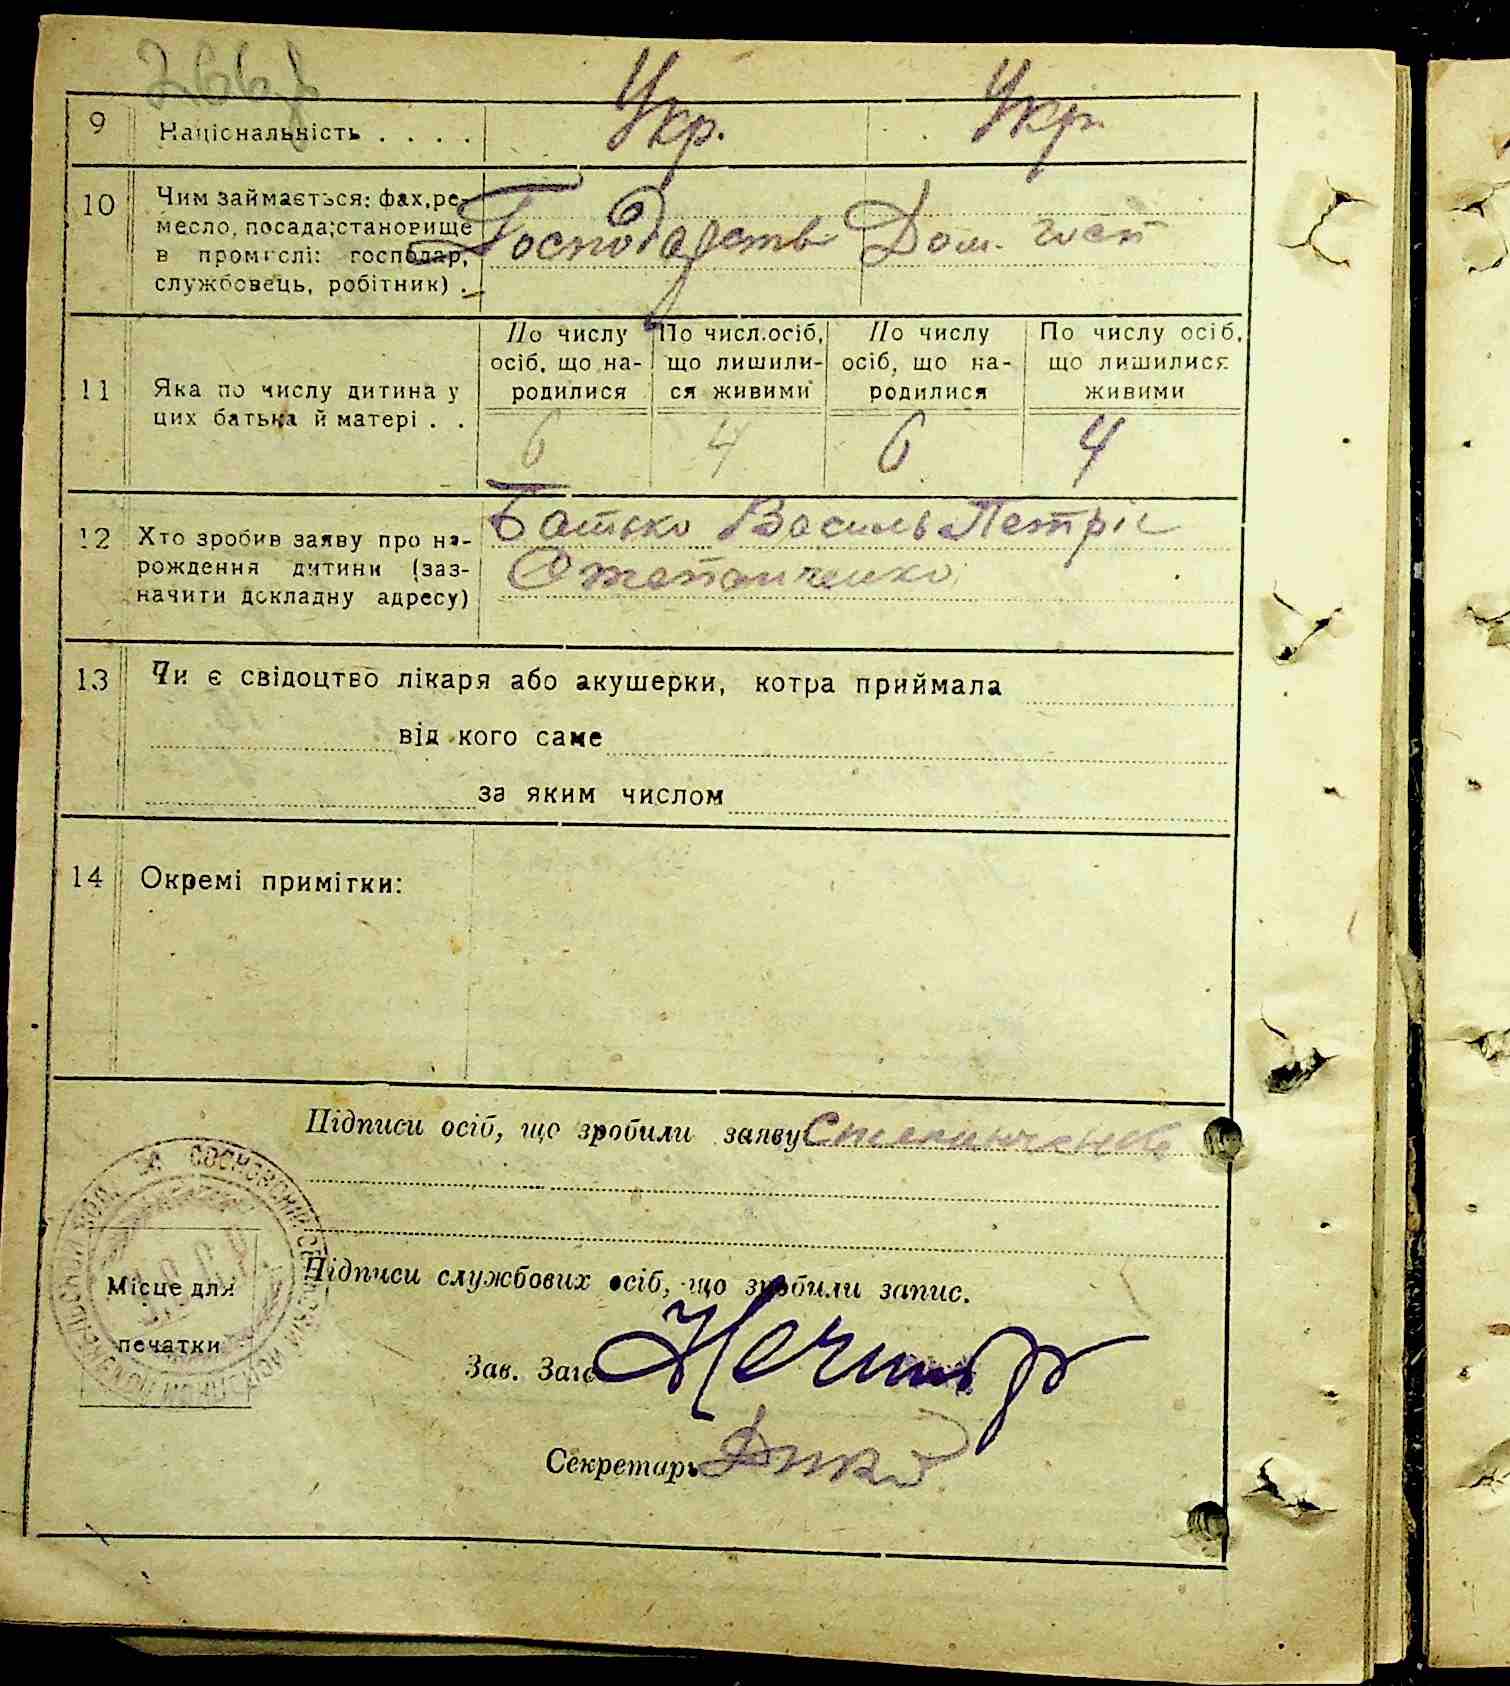 9 Національність . . . . Укр. Укр.
10 Чим займається: фах,ре-
месло, посада;становище
в промислі: господар,
службовець, робітник) .
Господарств Дом. госп
По числу осіб, що народилися
По числ.осіб, що лишилися живими
По числу осіб, що народилися
По числу осіб, що лишилися живими
11 Яка по числу дитина у
цих батька й матері . .
6 4 6 4
12 Хто зробив заяву про на-
рождення дитини (заз-
начити докладну адресу)
Батько Василь Петріс
Степанченко
13 Чи є свідоцтво лікаря або акушерки, котра приймала
від кого саме
за яким числом
14 Окремі примітки:
Підписи осіб, що зробили заяву Степанченко
Місце для
печатки
Підписи службових осіб, що зробили запис.
Зав. Загс
Секретарь